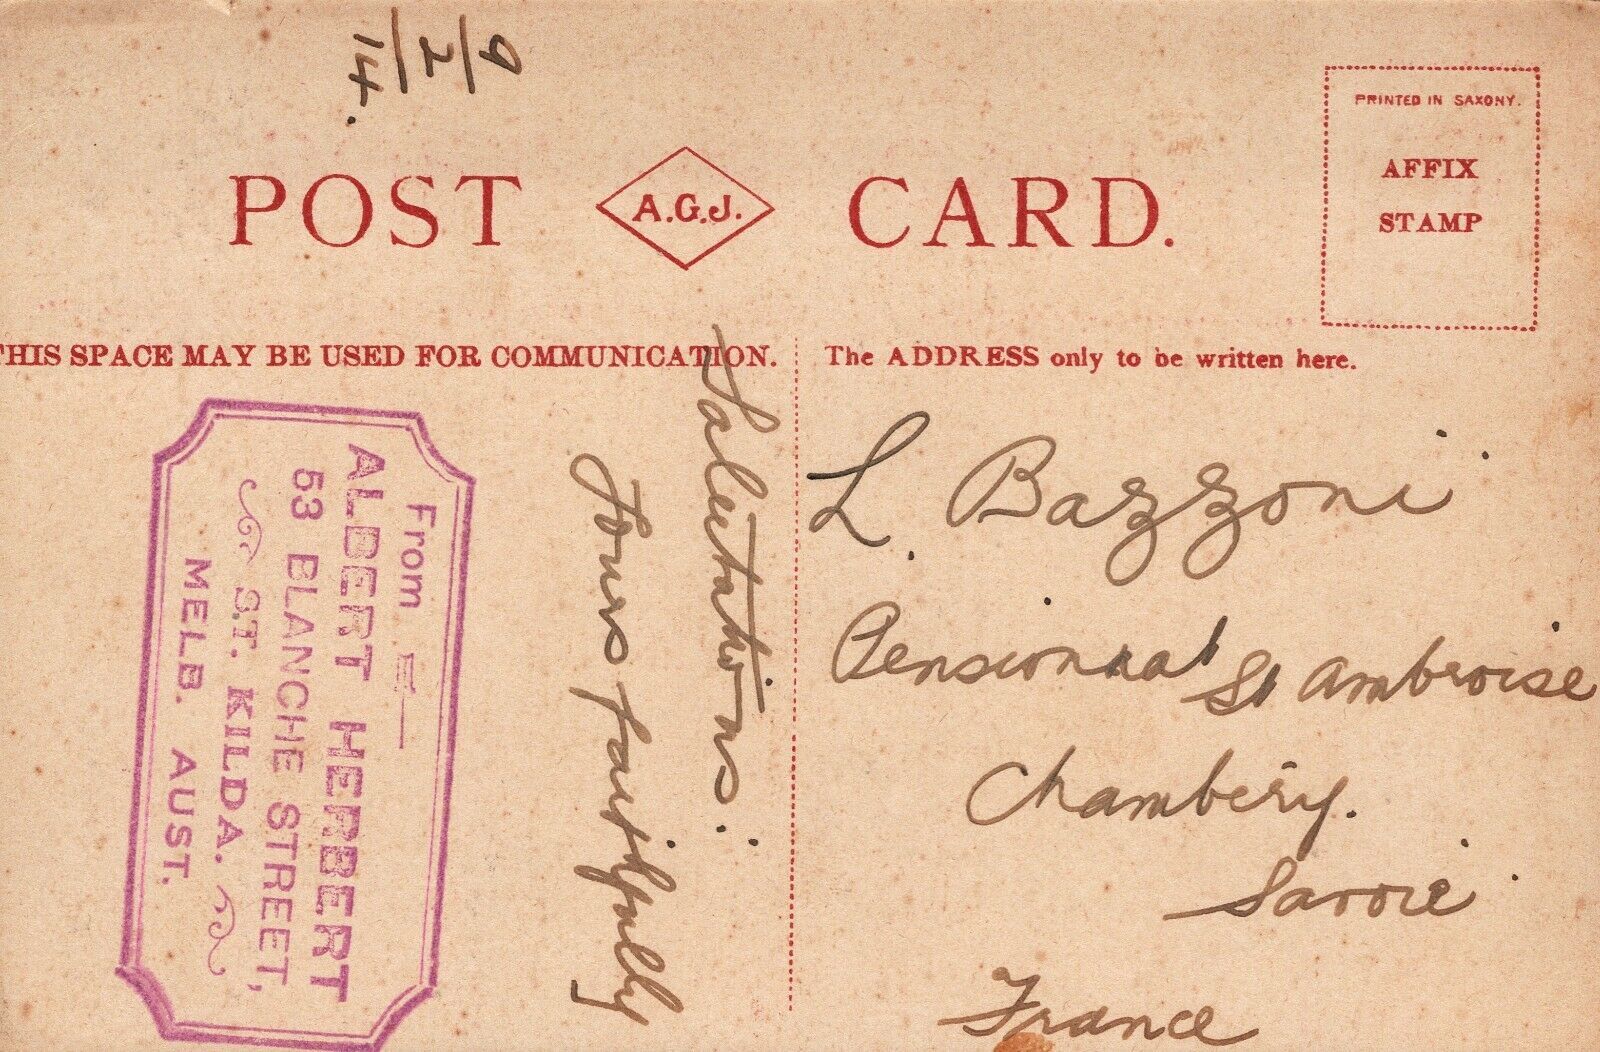 9/2/14.
POST A.G.J. CARD.
PRINTED IN SAXONY.
AFFIX
STAMP
THIS SPACE MAY BE USED FOR COMMUNICATION.
The ADDRESS only to be written here.
From
ALBERT HERBERT
53 BLANCHE STREET,
ST. KILDA.
MELB. AUST.
Salutations.
Yours faithfully
L. Bazzoni
Pensionnat St Ambroise
Chambéry.
Savoie
France